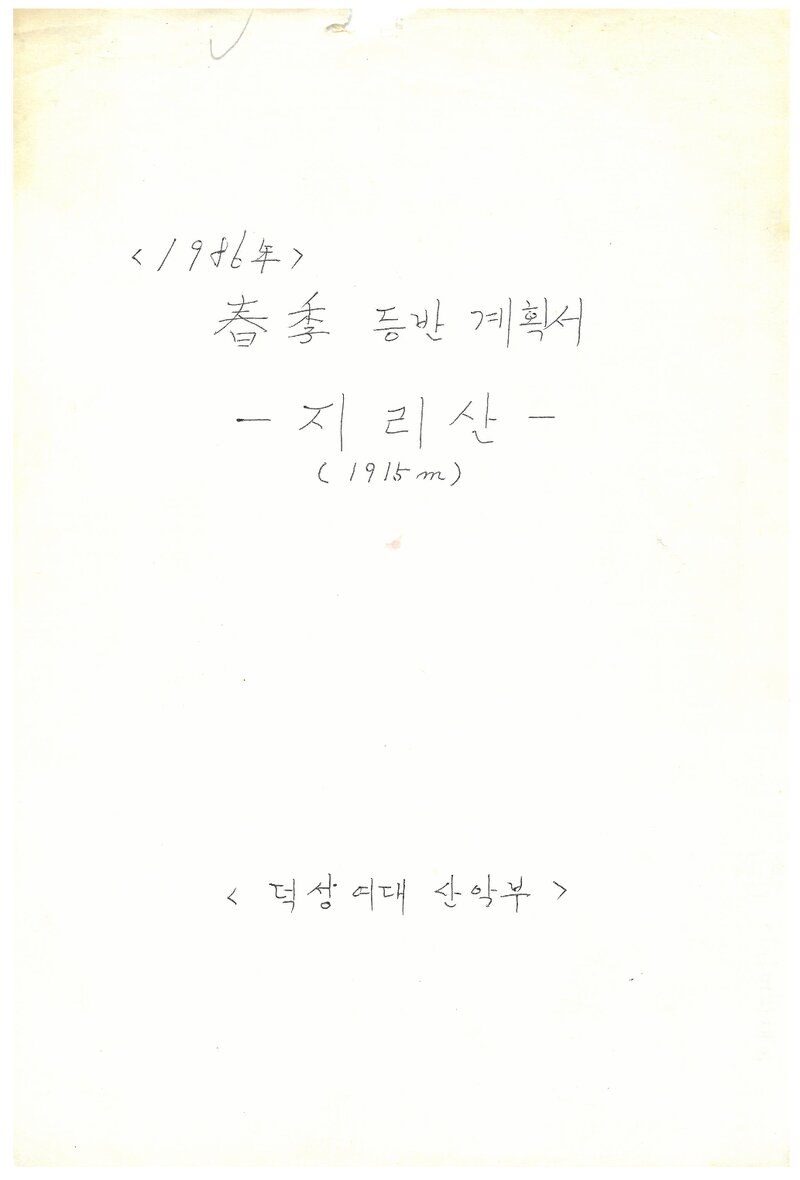 < 1986年 >
春季 등반 계획서
- 지리산 -
( 1915m )
< 덕성여대 산악부 >